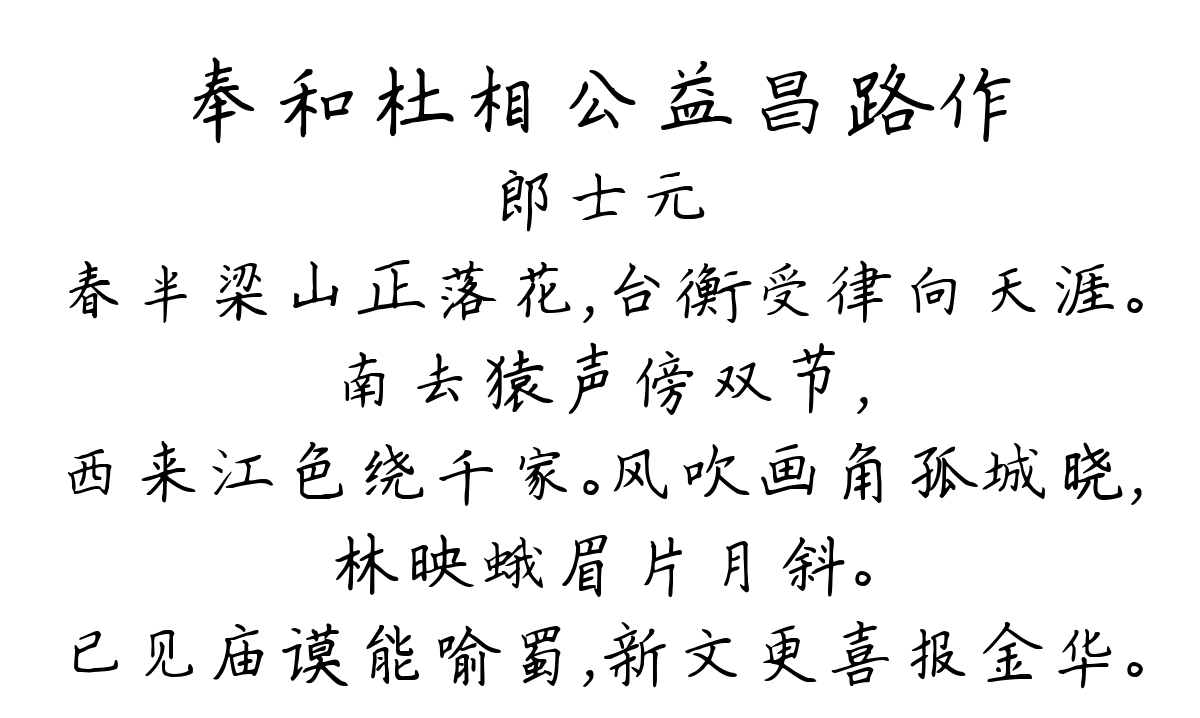 奉和杜相公益昌路作
郎士元
春半梁山正落花,台衡受律向天涯。
南去猿声傍双节,
西来江色绕千家。风吹画角孤城晓,
林映蛾眉片月斜。
已见庙谟能喻蜀,新文更喜报金华。